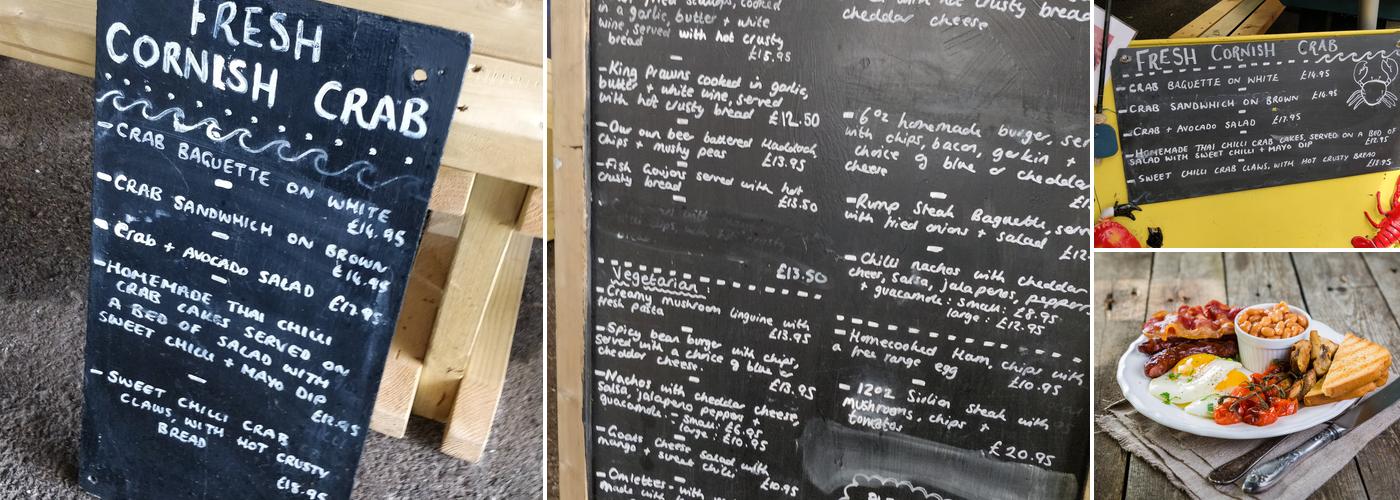 FRESH
CORNISH CRAB
- CRAB BAGUETTE ON WHITE
£14.95
- CRAB SANDWHICH ON BROWN
£14.95
- Crab + AVOCADO SALAD £17.95
- HOMEMADE THAI CHILLI
CRAB CAKES SERVED ON
A BED OF SALAD WITH
SWEET CHILLI + MAYO DIP
- SWEET CHILLI CRAB
CLAWS, WITH HOT CRUSTY
BREAD
in a garlic, butter + white
wine, served with hot crusty
bread £15.95
- King Prawns cooked in garlic,
butter + white wine, served
with hot crusty bread £12.50
- Our own beer battered Haddock,
chips + mushy peas £13.95
- Fish Goujons served with hot
crusty bread £13.50
£13.50
Vegetarian:
- Creamy mushroom linguine with
fresh pasta £13.95
- Spicy bean burger with chips,
served with a choice of blue or
cheddar cheese. £13.95
- Nachos with cheddar cheese,
salsa, jalapeno peppers +
guacamole - small: £6.95
large: £10.95
- Goats cheese salad with
mango + sweet chilli. £10.95
- Omlettes - with
made with
hot crusty bread
cheddar cheese
- 6oz homemade burger, ser
with chips, bacon, gerkin +
choice of blue or cheddar
cheese
- Rump Steak Baguette, serv
with fried onions + salad
£12.
- Chilli nachos with cheddar
cheese, salsa, jalapenos, pepper
+ guacamole: small: £8.95
large: £12.95
- Homecooked Ham, chips with
a free range egg £10.95
- 12oz Sirloin steak with
mushrooms, chips +
tomatoes
£20.95
FRESH CORNISH CRAB
- CRAB BAGUETTE ON WHITE £14.95
- CRAB SANDWHICH ON BROWN £14.95
- CRAB + AVOCADO SALAD £17.95
- HOMEMADE THAI CHILLI CRAB CAKES, SERVED ON A BED OF
SALAD WITH SWEET CHILLI + MAYO DIP
- SWEET CHILLI CRAB CLAWS, WITH HOT CRUSTY BREAD